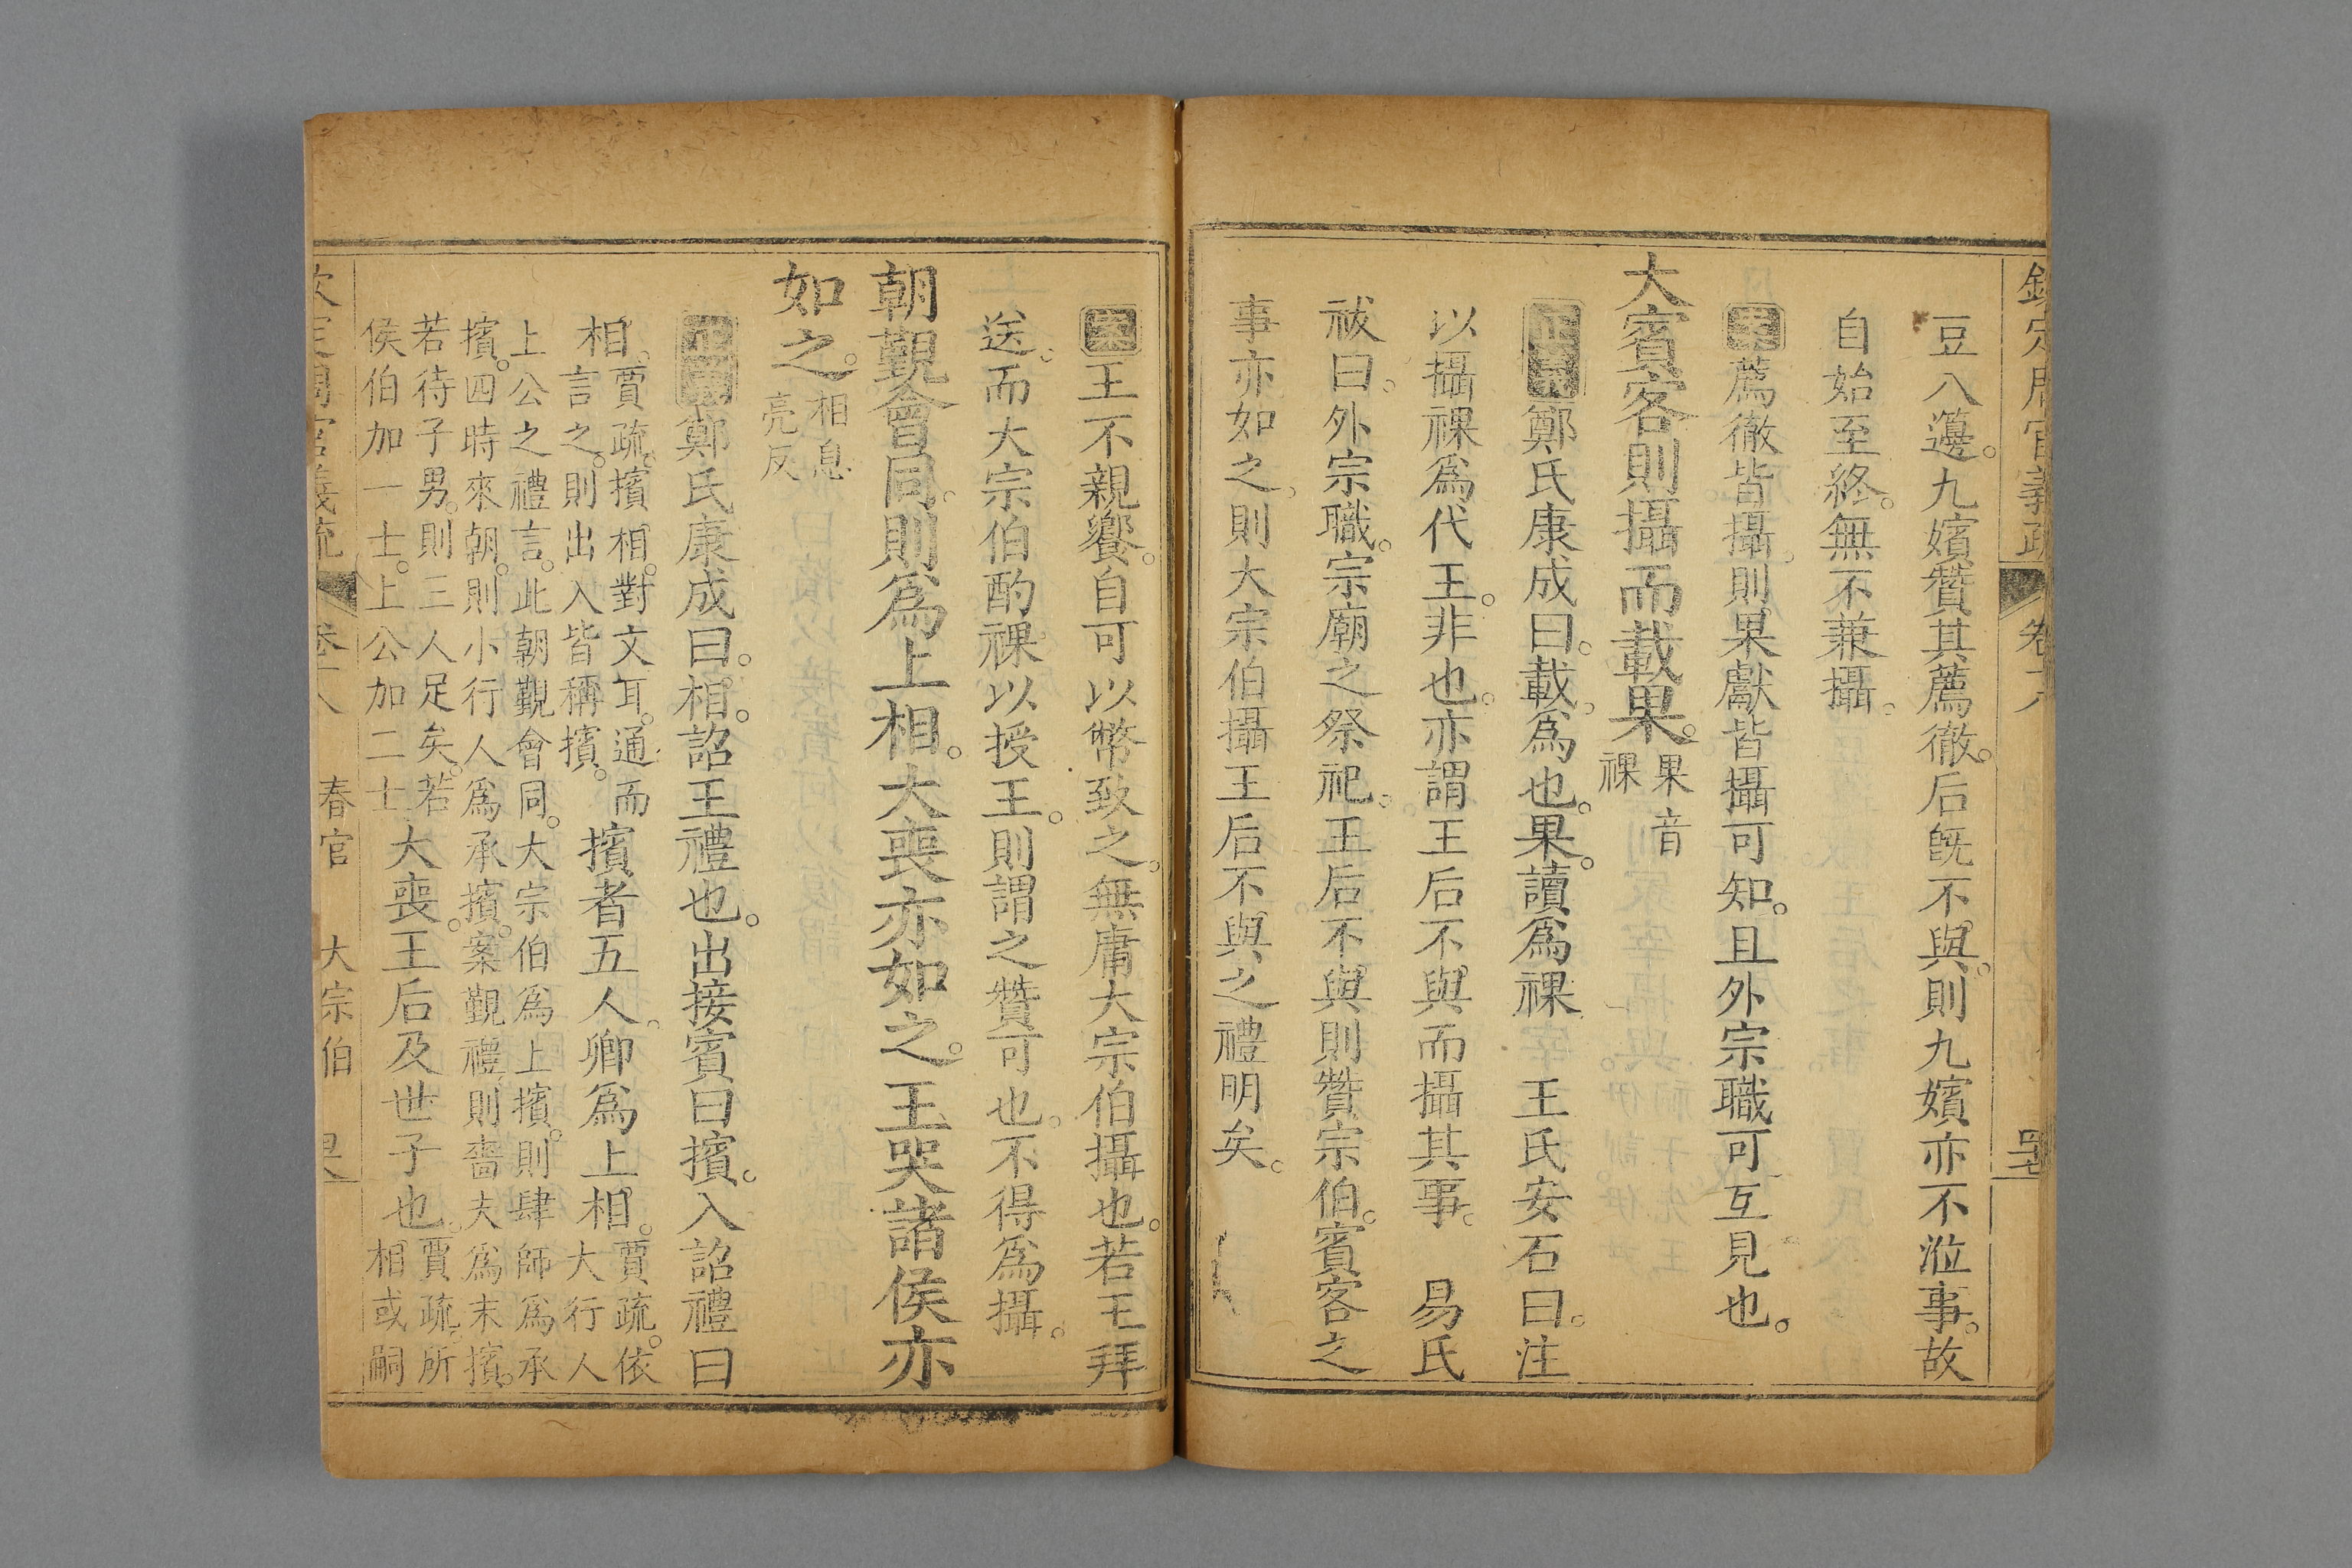 欽定周官義疏 卷十八
豆八籩。九嬪贊其薦徹。后旣不與。則九嬪亦不涖事。故
自始至終。無不兼攝。
案薦徹皆攝。則果獻皆攝可知。且外宗職可互見也。
大賓客則攝而載果。果音祼
正義鄭氏康成曰。載。爲也。果。讀爲祼 王氏安石曰。注
以攝祼爲代王。非也。亦謂王后不與而攝其事。 易氏
祓曰。外宗職。宗廟之祭祀。王后不與則贊宗伯。賓客之
事亦如之。則大宗伯攝王后不與之禮明矣。
案王不親饗。自可以幣致之。無庸大宗伯攝也。若王拜
送。而大宗伯酌祼以授王。則謂之贊可也。不得爲攝。
朝覲會同。則爲上相。大喪亦如之。王哭諸侯亦
如之。相息亮反
正義鄭氏康成曰。相。詔王禮也。出接賓曰擯。入詔禮曰
相。賈疏。擯相。對文耳。通而言之。則出入皆稱擯。擯者五人。卿爲上相。賈疏。依大行人
上公之禮言。此朝覲會同。大宗伯爲上擯。則肆師爲承
擯。四時來朝。則小行人爲承擯。案覲禮。則嗇夫爲末擯。
若待子男。則三人足矣。若侯伯加一士。上公加二士 大喪。王后及世子也。賈疏。所相或嗣
欽定周官義疏 卷十八 春官 大宗伯